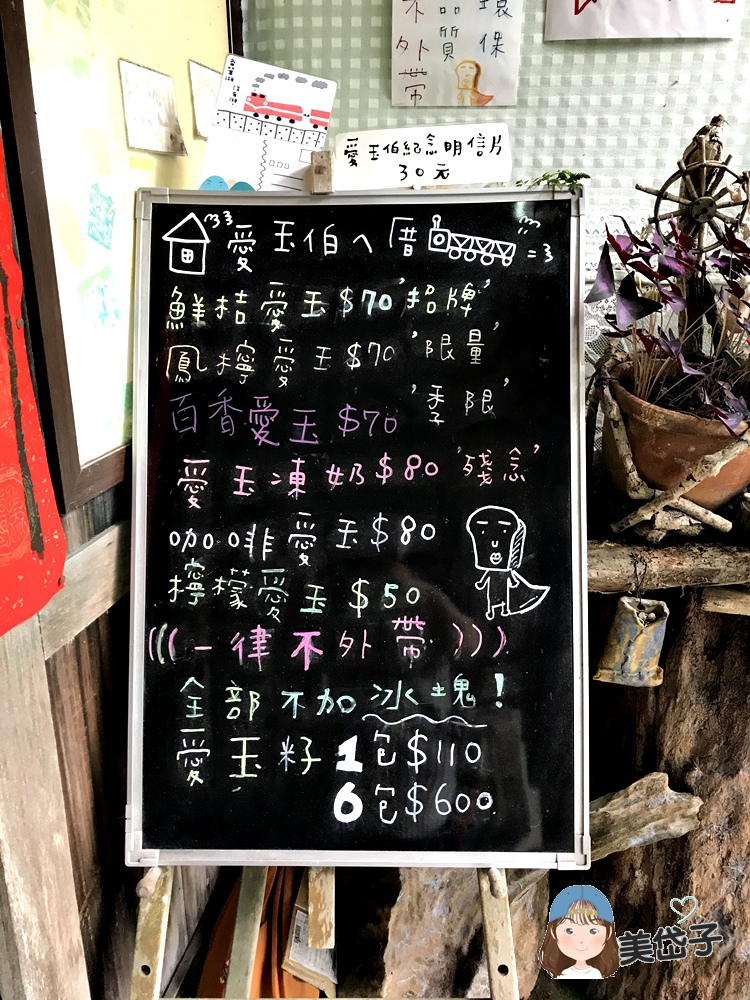 不 品 環
外 質 保
帶
愛玉伯紀念明信片
30元
愛玉伯ㄟ厝
鮮桔愛玉$70 '招牌'
鳳檸愛玉$70 '限量'
百香愛玉$70 '季限'
愛玉凍奶$80 '殘念'
咖啡愛玉$80
檸檬愛玉$50
(((一律不外帶)))
全部不加冰塊!
愛玉籽1包$110
6包$600
美岱子